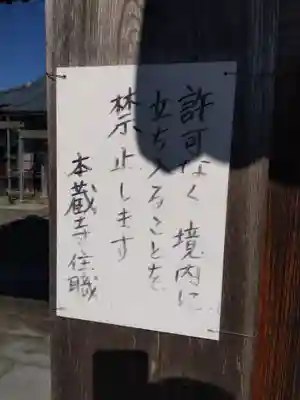 許可なく境内に
立ち入ることを
禁止します
本蔵寺住職